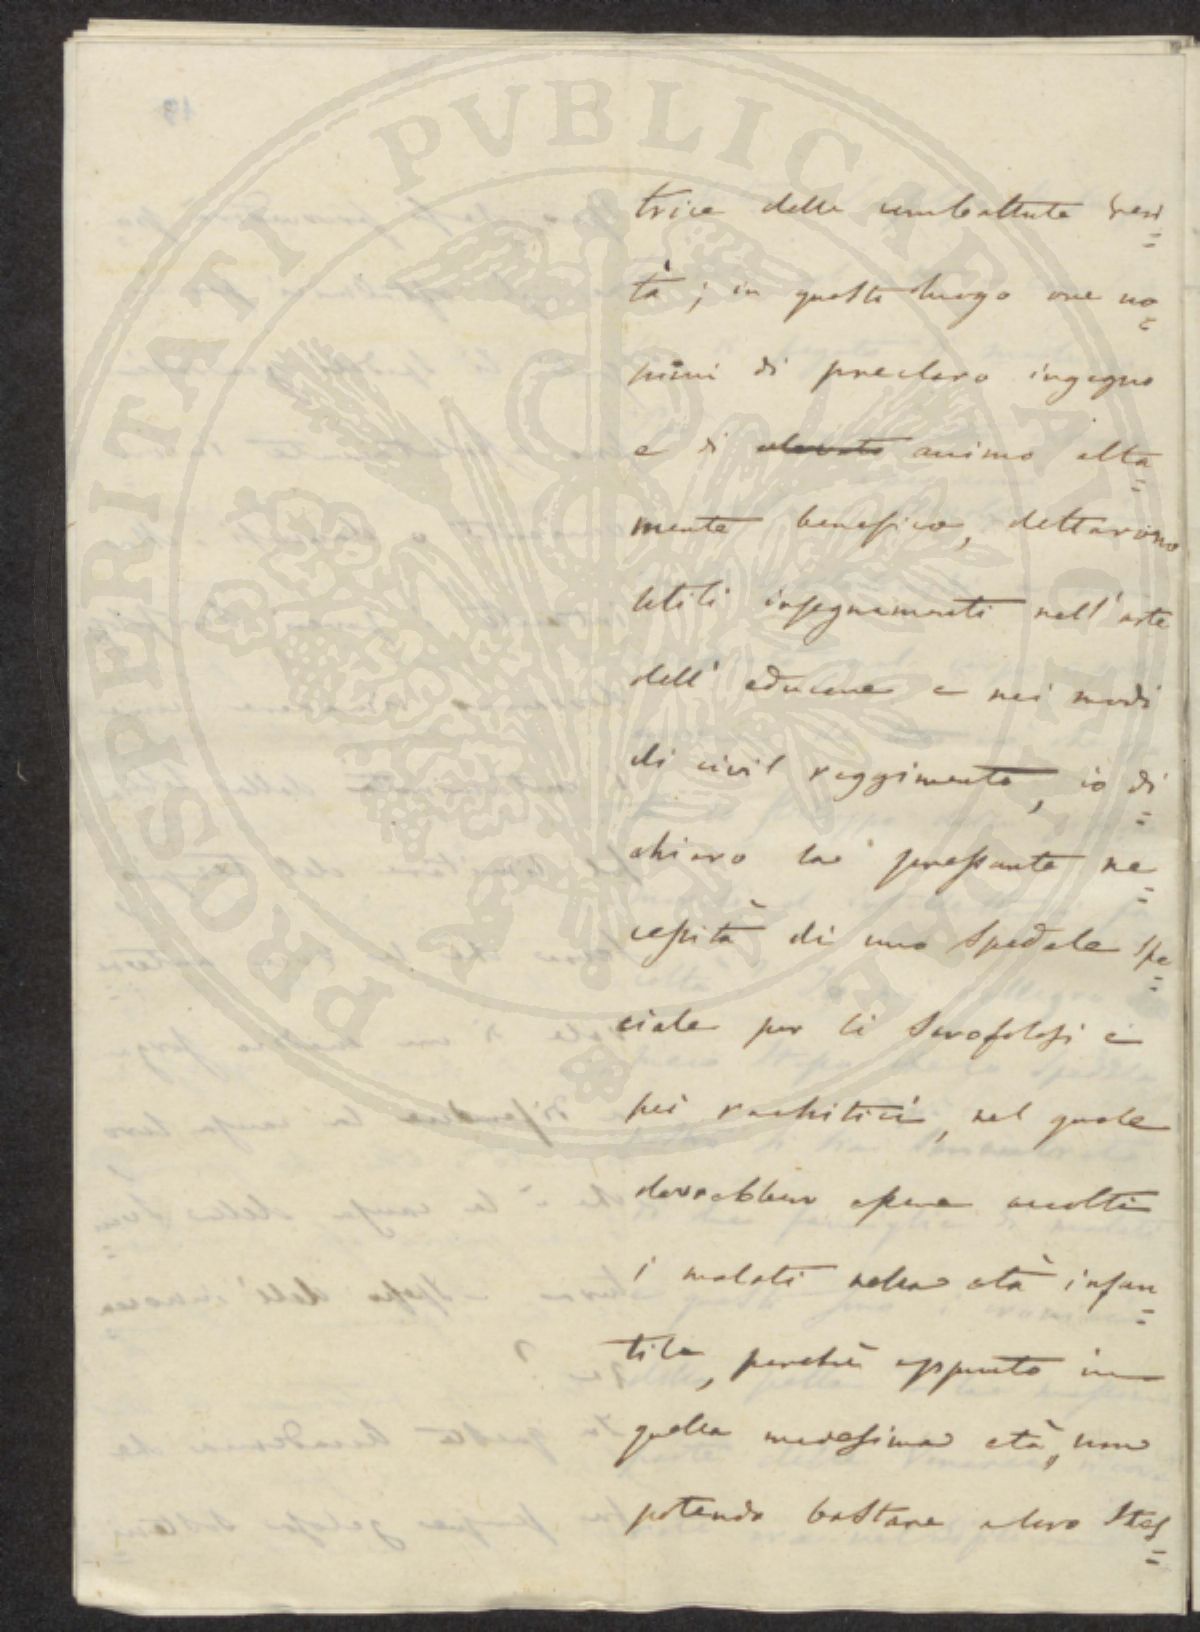 PROSPERITATI PVBLICAE AVGENDAE
trice della combattuta veri=
tà; in questo luogo ove uo=
mini di preclaro ingegno
e di elevato animo alta=
mente benefico, dettarono
utili insegnamenti nell'arte
dell'educare e nei modi
di civil reggimento, io di=
chiaro la pressante ne=
cessità di uno Spedale spe=
ciale per li Scrofolosi e
pei rachitici, nel quale
dovrebbero essere accolti
i malati nella età infan=
tile, perchè appunto in
quella medesima età, non
potendo bastare a loro stes=